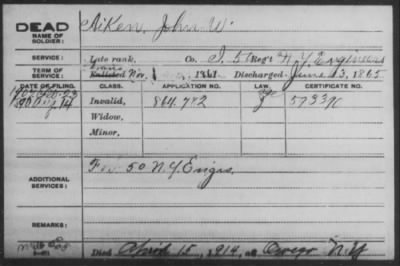 DEAD
NAME OF SOLDIER:
Aiken, John W.
SERVICE:
Late rank, Co. I, 50 Reg't N.Y. Engineers
TERM OF SERVICE:
Enlisted Nov. 1861 Discharged June 13, 1865
DATE OF FILING. CLASS. APPLICATION NO. LAW. CERTIFICATE NO.
Invalid, 864.742
Widow,
Minor.
ADDITIONAL SERVICES:
50 N.Y. Engrs.
REMARKS:
Died April 15, 1914, at Owego N.Y.